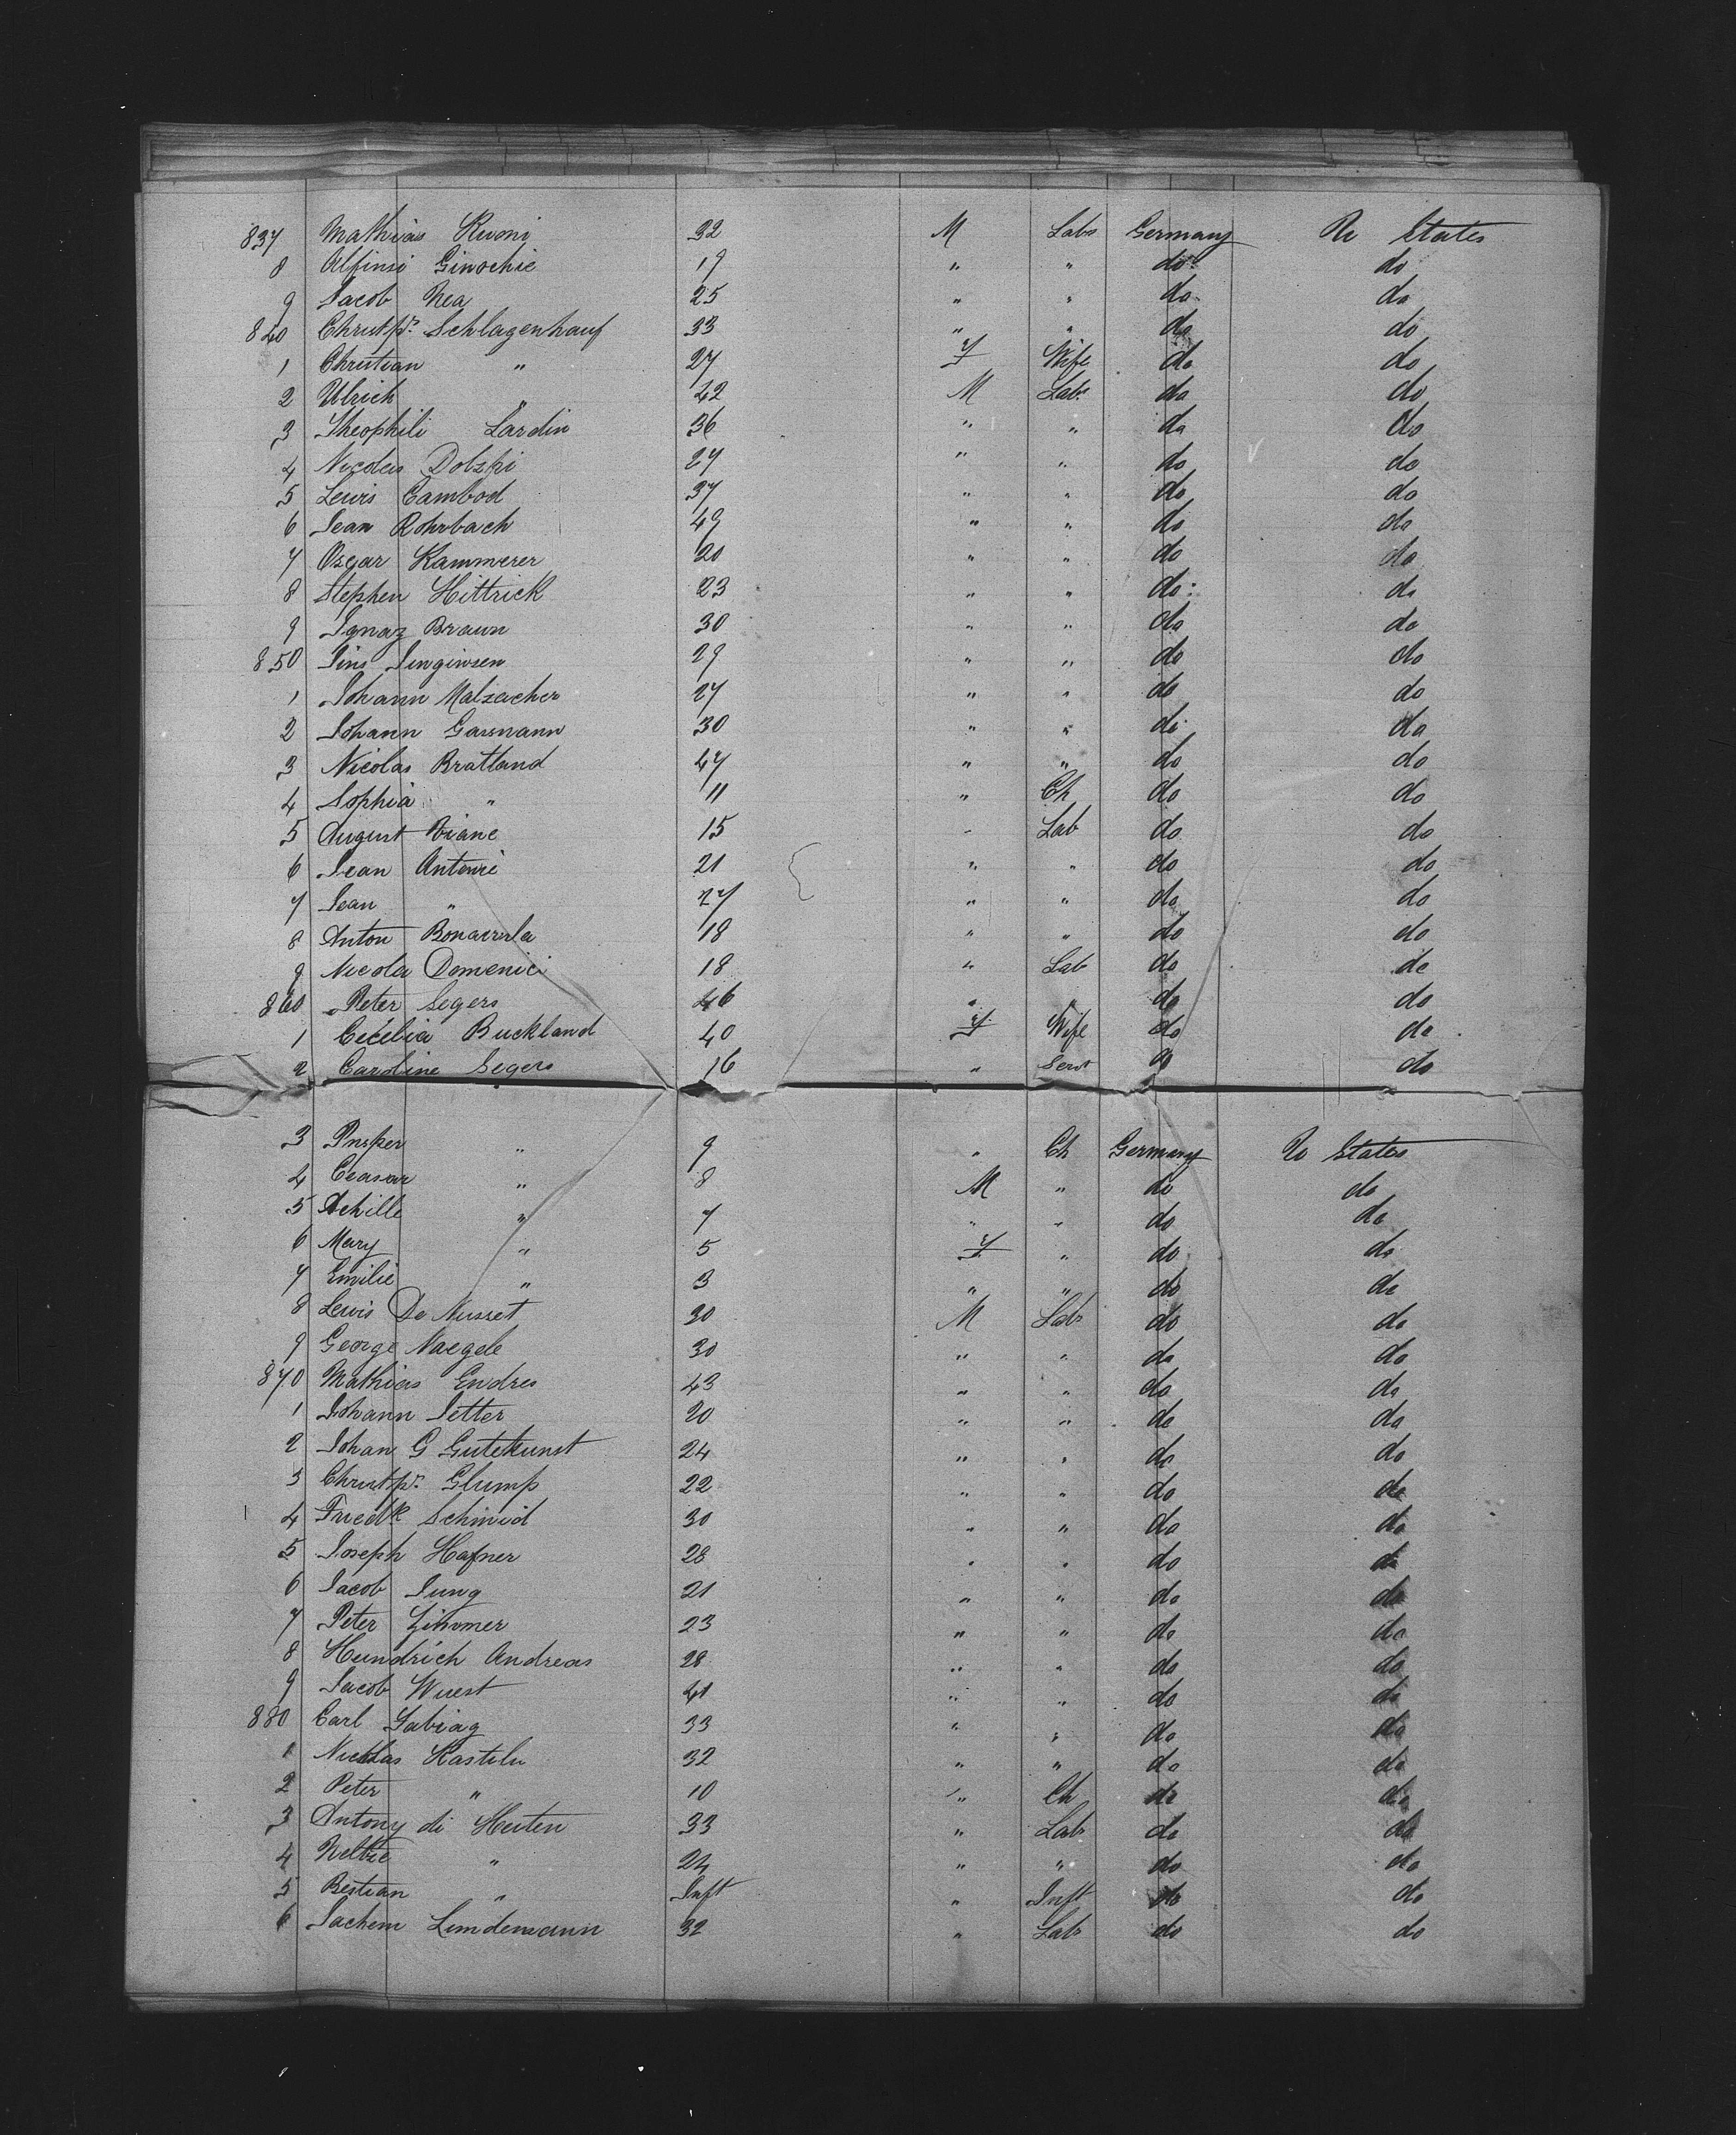 837 Mathias Kuoni 32 M Labr Germany U States
8 Alfinsi Ginochie 19 " " do do
9 Jacob Nea 25 " " do do
840 Christpr. Schlagenhauf 33 " " do do
1 Christian " 27 F Wife do do
2 Ulrich " 42 M Labr do do
3 Theophili Lardin 36 " " do do
4 Nicolas Dolzki 27 " " do do
5 Lewis Cambod 37 " " do do
6 Jean Rohrbach 49 " " do do
7 Oscar Kammerer 20 " " do do
8 Stephen Hittrick 23 " " do do
9 Ignaz Braun 30 " " do do
850 Jins 29 " " do do
1 Johann Malzacher 27 " " do do
2 Johann Gassmann 30 " " do do
3 Nicolas Bratland 47 " " do do
4 Sophia " 11 " Ch do do
5 August 15 " Lab do do
6 Jean Antoni 21 " " do do
7 Jean " 27 " " do do
8 Anton 18 " " do do
9 Nicola Domenici 18 " Lab do do
860 Peter Segers 46 " " do do
1 Cecelia Buckland 40 F Wife do do
2 Caroline Segers 16 " Servt do do
3 " 9 " Ch Germany U States
4 Ceasar " 8 M " do do
5 Achille " 7 " " do do
6 Mary " 5 F " do do
7 Emilie " 3 " " do do
8 Lewis De Nusset 30 M Labr do do
9 George Naegele 30 " " do do
870 Mathias Endres 43 " " do do
1 Johann Jetter 20 " " do do
2 Johan G Gutekunst 24 " " do do
3 Christpr. Glump 22 " " do do
4 Friedk Schmid 30 " " do do
5 Joseph Hafner 28 " " do do
6 Jacob Jung 21 " " do do
7 Peter Zimmer 23 " " do do
8 Hundrich Andreas 28 " " do do
9 Jacob Wuest 41 " " do do
880 Carl 33 " " do do
1 Nicklas Kastiln 32 " " do do
2 Peter " 10 " Ch do do
3 Antony di Heuten 33 " Labr do do
4 Neltie " 24 " " do do
5 Bestian " Inft " Inft do do
6 Jachem Lindemann 32 " Labr do do